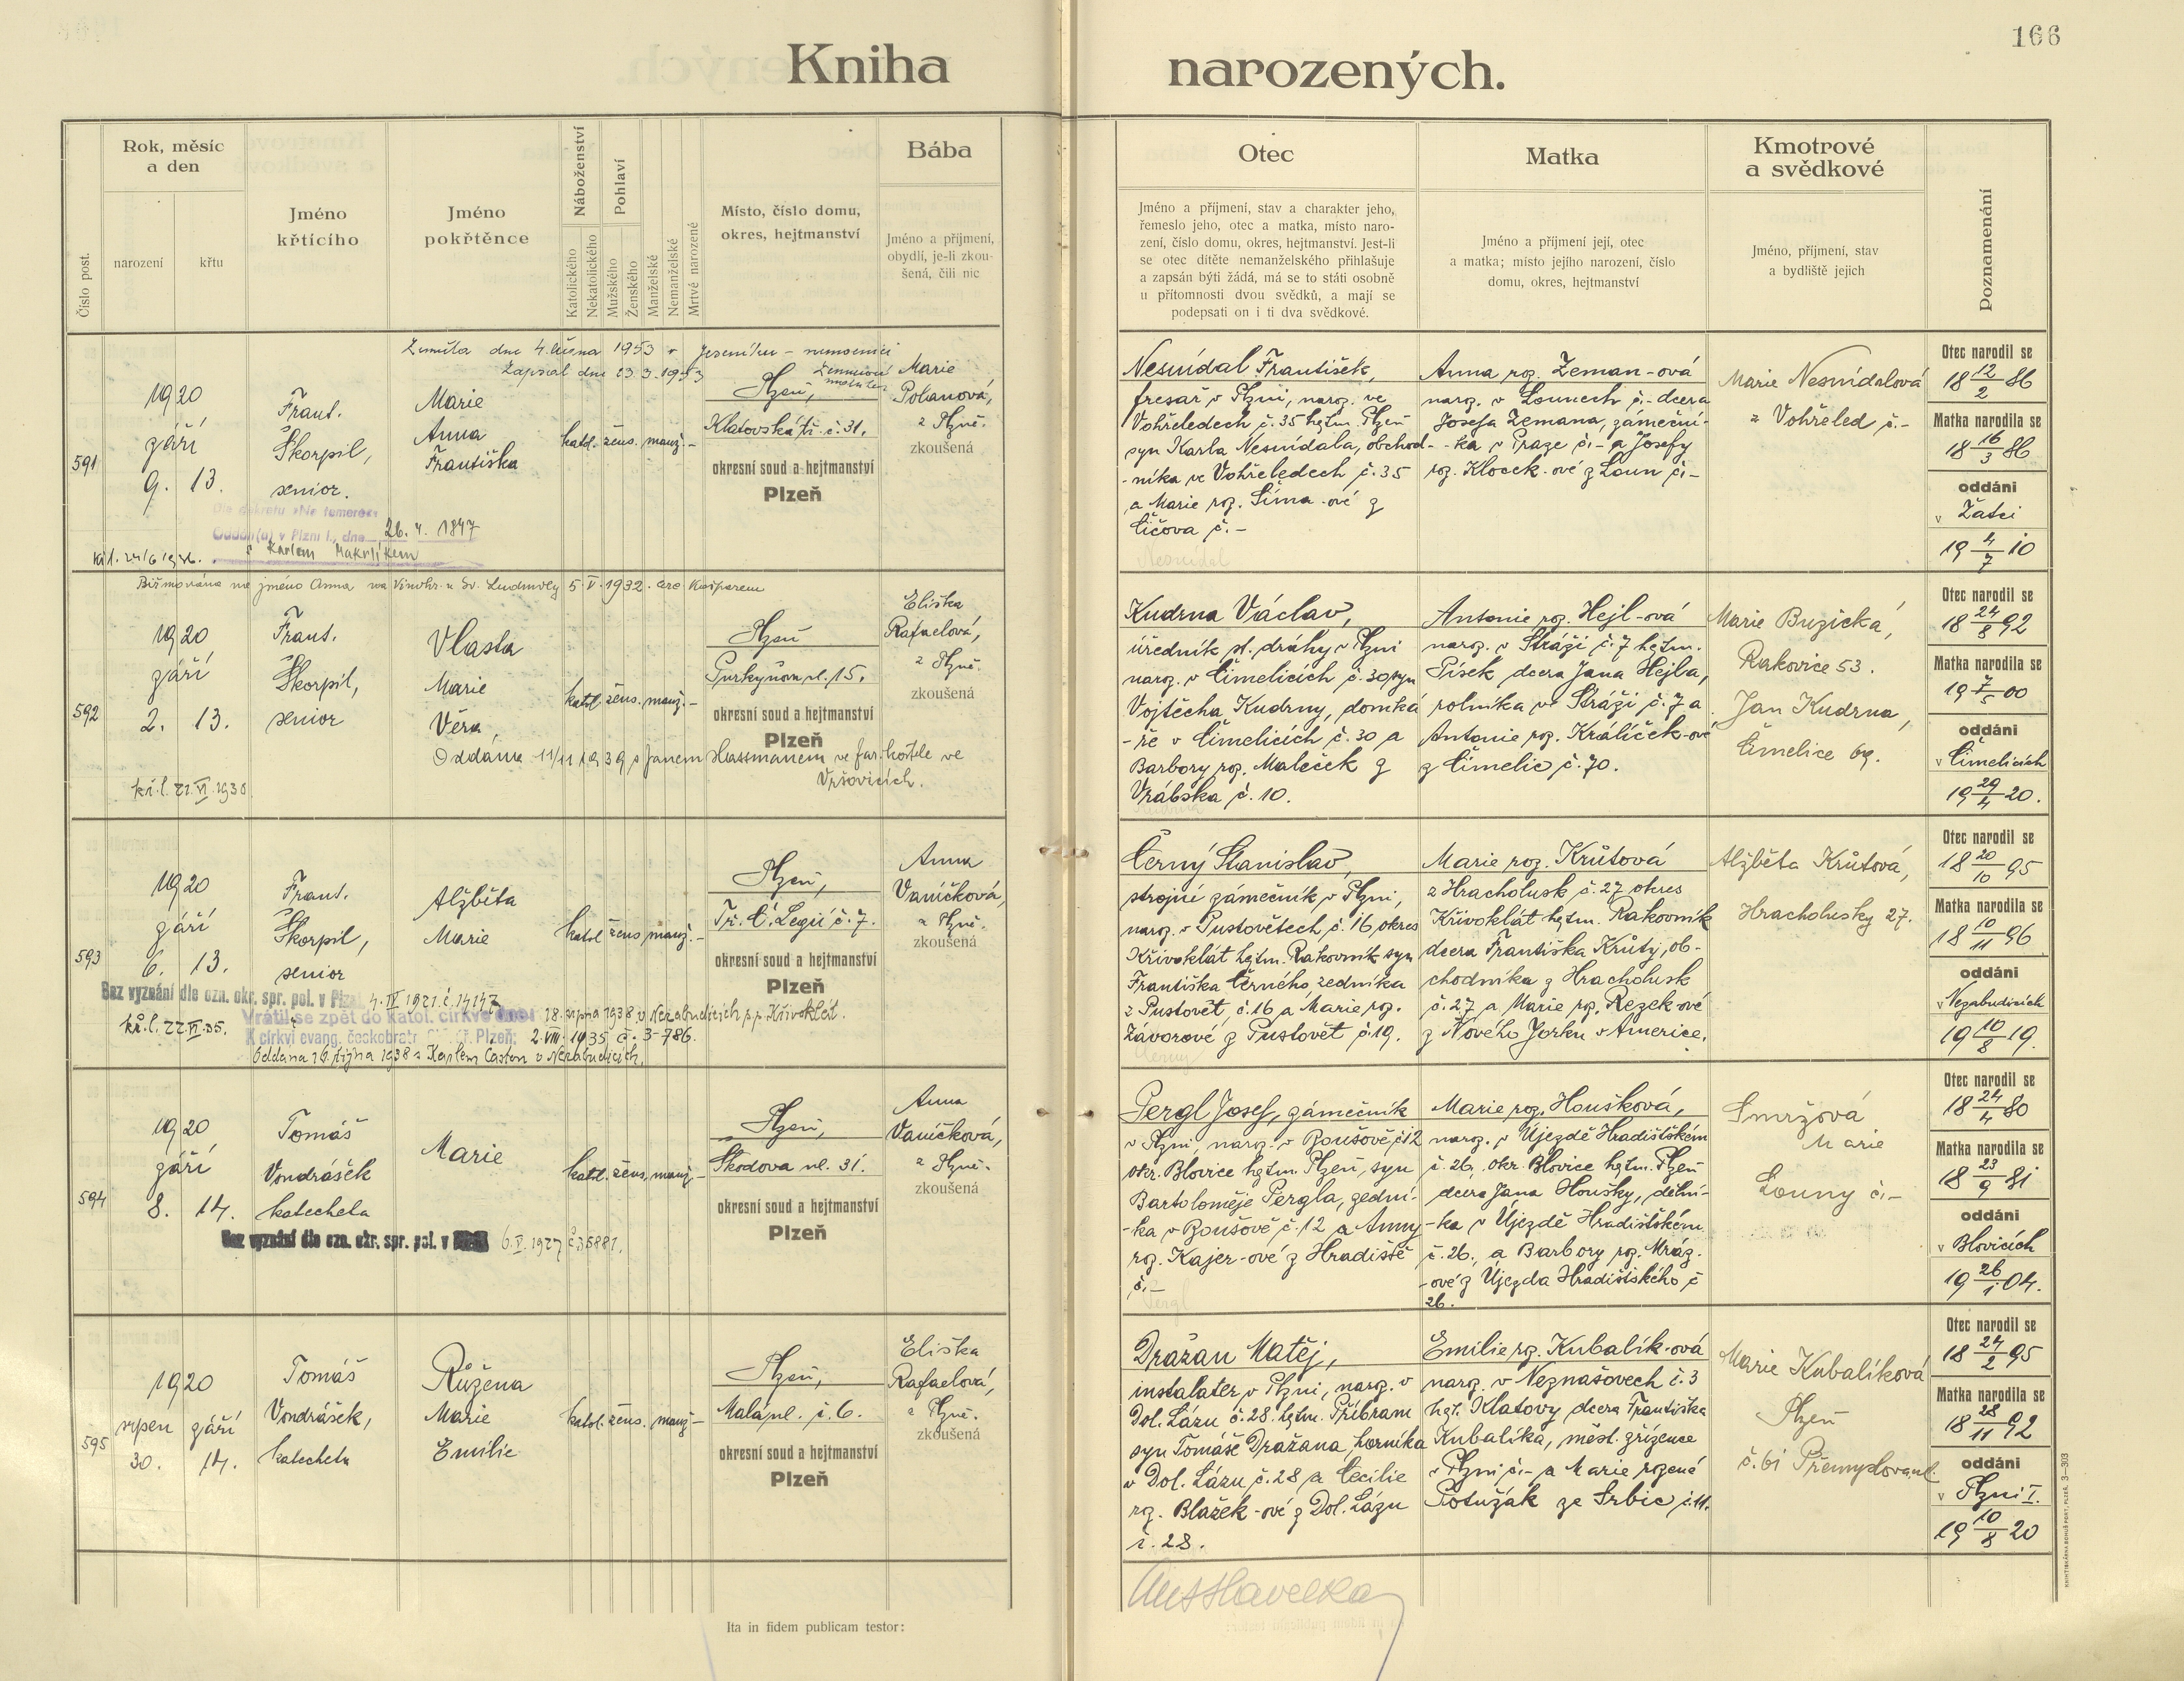 166
Kniha narozených.
Číslo post.
Rok, měsíc
a den
narození
křtu
Jméno
křtícího
Jméno
pokřtěnce
Náboženství
Katolického
Nekatolického
Pohlaví
Mužského
Ženského
Manželské
Nemanželské
Mrtvě narozené
Místo, číslo domu,
okres, hejtmanství
Bába
Jméno a příjmení,
obydlí, je-li zkou-
šená, čili nic
Otec
Jméno a příjmení, stav a charakter jeho,
řemeslo jeho, otec a matka, místo naro-
zení, číslo domu, okres, hejtmanství. Jest-li
se otec dítěte nemanželského přihlašuje
a zapsán býti žádá, má se to státi osobně
u přítomnosti dvou svědků, a mají se
podepsati on i ti dva svědkové.
Matka
Jméno a příjmení její, otec
a matka; místo jejího narození, číslo
domu, okres, hejtmanství
Kmotrové
a svědkové
Jméno, příjmení, stav
a bydliště jejich
Poznamenání
Zemřela dne 4. března 1953 v Jeseníku – nemocnici
Zapsal dne 13.3.1953
591
1920
září
9. 13.
Frant.
Škorpil,
senior.
Marie
Anna
Františka
katol. žens. manž. –
Plzeň,
Klatovská tř. č. 31.
okresní soud a hejtmanství
Plzeň
Marie
Polanová,
z Plzně.
zkoušená
Dle dekretu »Ne temere«
Oddán(a) v Plzni I., dne 26. 4. 1947
s Karlem Makrlíkem
Nesnídal František,
fresař v Plzni, naroz. ve
Vohřeledech č. 35 hejtm. Plzeň
syn Karla Nesnídala, obchod-
-níka ve Vohřeledech č. 35
a Marie roz. Šíma-ové z
Číčova č. –
Nesnídal
Anna roz. Zeman-ová
naroz. v Lounech č. – dcera
Josefa Zemana, zámeční-
-ka v Praze č. – a Josefy
roz. Klocek-ové z Loun č. –
Marie Nesnídalová
z Vohřeled č. –
Otec narodil se
18 12/2 86
Matka narodila se
18 16/3 86
oddáni
v Žatci
19 4/7 10
Biřmována na jméno Anna na Vinohr. u Sv. Ludmily 5.V.1932. arc Kašparem
592
1920
září
2. 13.
Frant.
Škorpil,
senior
Vlasta
Marie
Věra
katol. žens. manž. –
Plzeň
Purkyňova ul. 15.
okresní soud a hejtmanství
Plzeň
Eliška
Rafaelová,
z Plzně.
zkoušená
Oddána 11/11 1939 s Janem Hassmanem ve far. kostele ve
Vršovicích.
kř. l. 21.VI.1930
Kudrna Václav,
úředník st. dráhy v Plzni
naroz. v Čimelicích č. 30, syn
Vojtěcha Kudrny, domká
-ře v Čimelicích č. 30 a
Barbory roz. Maleček z
Vrábska č. 10.
Antonie roz. Hejl-ová
naroz. v Stráži č. 7 hejtm.
Písek dcera Jana Hejla,
rolníka ve Stráži č. 7 a
Antonie roz. Králíček-ové
z Čimelic č. 70.
Marie Buzická,
Rakovice 53.
Jan Kudrna,
Čimelice 69.
Otec narodil se
18 24/8 92
Matka narodila se
19 7/5 00
oddáni
v Čimelicích
19 29/4 20.
593
1920
září
6. 13.
Frant.
Škorpil,
senior
Alžběta
Marie
katol. žens. manž. –
Plzeň,
Tř. Č. Legií č. 7.
okresní soud a hejtmanství
Plzeň
Anna
Vaníčková,
z Plzně.
zkoušená
Bez vyznání dle ozn. okr. spr. pol. v Plzni 4.IV 1921 č. 14147
kř. l. 22.VI.35.
Vrátil se zpět do katol. církve dne: 28. srpna 1938 v Nezabudicích p.p. Křivoklát.
K církvi evang. českobratr. Plzeň: 2.VIII.1935 č. 3-786.
Oddána 16. října 1938 s Karlem Castou v Nezabudicích.
Černý Stanislav,
strojní zámečník v Plzni,
naroz. v Pustovětech č. 16 okres
Křivoklát hejtm. Rakovník syn
Františka Černého, zedníka
z Pustovět č. 16 a Marie roz.
Závorové z Pustovět č. 19.
Marie roz. Krůtová
z Hracholusk č. 27 okres
Křivoklát hejtm. Rakovník
dcera Františka Krůty, ob-
chodníka z Hracholusk
č. 27 a Marie roz. Rezek-ové
z Nového Jorku v Americe.
Alžběta Krůtová,
Hracholusky 27.
Otec narodil se
18 20/10 95
Matka narodila se
18 10/11 96
oddáni
v Nezabudicích
19 10/8 19.
594
1920
září
8. 14.
Tomáš
Vondrášek
katecheta
Marie
katol. žens. manž. –
Plzeň,
Škodova ul. 31.
okresní soud a hejtmanství
Plzeň
Anna
Vaníčková,
z Plzně.
zkoušená
Bez vyznání dle ozn. okr. spr. pol. v 6.V.1927 č. 35881.
Pergl Josef, zámečník
v Plzni, naroz. v Boušově č. 12
okr. Blovice hejtm. Plzeň, syn
Bartoloměje Pergla, zední-
-ka v Boušově č. 12 a Anny
roz. Kajer-ové z Hradiště
č. –
Pergl
Marie roz. Houšková,
naroz. v Újezdě Hradišťském
č. 26, okr. Blovice hejtm. Plzeň
dcera Jana Houšky, dělní-
-ka v Újezdě Hradišťském
č. 26, a Barbory roz. Mráz-
-ové z Újezda Hradišťského č
26.
Smržová
Marie
Louny č. –
Otec narodil se
18 24/4 80
Matka narodila se
18 23/9 81
oddáni
v Blovicích
19 26/1 04.
595
1920
srpen září
30. 14.
Tomáš
Vondrášek,
katecheta
Růžena
Marie
Emilie
katol. žens. manž –
Plzeň,
Malá ul. č. 6.
okresní soud a hejtmanství
Plzeň
Eliška
Rafaelová,
z Plzně.
zkoušená
Dražan Matěj,
instalater v Plzni, naroz. v
Dol. Lázu č. 28 hejtm. Příbram
syn Tomáše Dražana, horníka
v Dol. Lázu č. 28 a Cecilie
roz. Blažek-ové z Dol. Lázu
č. 28.
Emilie roz. Kubalík-ová
naroz. v Neznašovech č. 3
hejt. Klatovy dcera Františka
Kubalíka, měst. zřízence
v Plzni č. – a Marie rozené
Potužák ze Srbic č. 11.
Marie Kubalíková
Plzeň
č. 61 Přemyslova ul.
Otec narodil se
18 24/2 95
Matka narodila se
18 28/11 92
oddáni
v Plzni I.
19 10/8 20
Ita in fidem publicam testor: